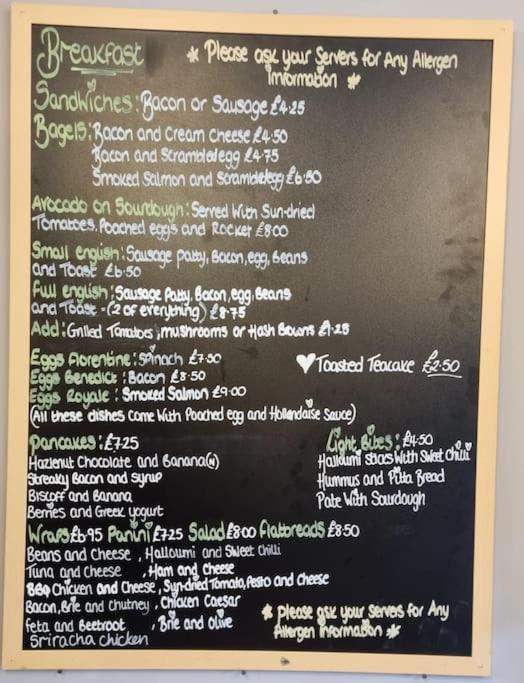 Breakfast
* Please ask your Servers for Any Allergen
Information *
Sandwiches: Bacon or Sausage £4.25
Bagels: Bacon and Cream Cheese £4.50
Bacon and Scrambled egg £4.75
Smoked Salmon and Scrambled egg £6.50
Avocado on Sourdough: Served With Sun-dried
Tomatoes, Poached eggs and Rocket £8.00
Small english: Sausage patty, Bacon, egg, Beans
and Toast £6.50
Full english: Sausage Patty, Bacon, egg, Beans
and Toast - (2 of everything) £8.75
Add: Grilled Tomatoes, mushrooms or Hash Browns £1.25
Eggs Florentine: Spinach £7.50
Eggs Benedict: Bacon £8.50
Eggs Royale: Smoked Salmon £9.00
(All these dishes come With Poached egg and Hollandaise Sauce)
♥ Toasted Teacake £2.50
Pancakes: £7.25
Hazlenut Chocolate and Banana (N)
Streaky Bacon and Syrup
Biscoff and Banana
Berries and Greek yogurt
Light Bites: £4.50
Halloumi Sticks With Sweet Chilli
Hummus and Pitta Bread
Pate With Sourdough
Wraps £6.95 Panini £7.25 Salad £8.00 Flatbreads £8.50
Beans and Cheese, Halloumi and Sweet Chilli
Tuna and Cheese, Ham and Cheese
BBQ Chicken and Cheese, Sun-dried Tomato, Pesto and Cheese
Bacon, Brie and Chutney, Chicken Caesar
Feta and Beetroot, Brie and Olive
Sriracha Chicken
* Please ask your Servers for Any
Allergen Information *